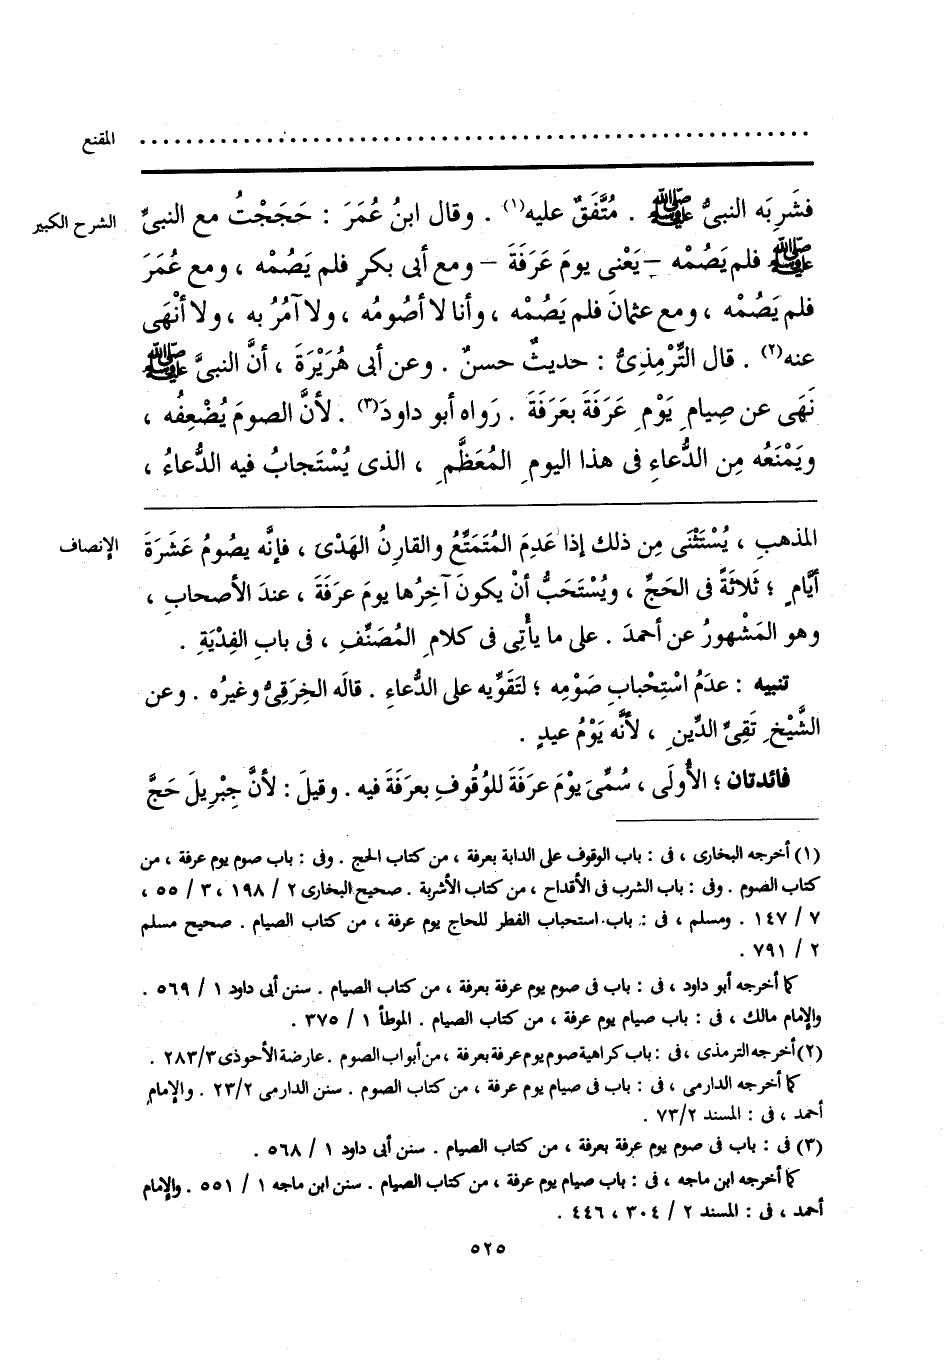 المقنع ................................................................
الشرح الكبير
فشَرِبَه النبىُّ ﷺ . مُتَّفَقٌ عليه(١) . وقال ابنُ عُمَرَ : حَجَجْتُ مع النبىِّ
ﷺ فلم يَصُمْه – يَعْنى يومَ عَرَفَةَ – ومع أبى بكرٍ فلم يَصُمْه ، ومع عُمَرَ
فلم يَصُمْه ، ومع عثمانَ فلم يَصُمْه ، وأنا لا أصُومُه ، ولا آمُرُ به ، ولا أنْهَى
عنه(٢) . قال التِّرْمِذِىُّ : حديثٌ حسنٌ . وعن أبى هُرَيْرَةَ ، أنَّ النبىَّ ﷺ
نَهَى عن صِيامِ يَوْمِ عَرَفَةَ بعَرَفَةَ . رَواه أبو داودَ(٣) . لأنَّ الصومَ يُضْعِفُه ،
ويَمْنَعُه مِن الدُّعاءِ فى هذا اليومِ المُعَظَّمِ ، الذى يُسْتَجابُ فيه الدُّعاءُ ،
الإنصاف
المذهبِ ، يُسْتَثْنَى مِن ذلك إذا عَدِمَ المُتَمَتِّعُ والقارِنُ الهَدْىَ ، فإنَّه يصُومُ عَشَرَةَ
أيَّامٍ ؛ ثَلاثَةً فى الحَجِّ ، ويُسْتَحَبُّ أنْ يكونَ آخِرُها يومَ عرفَةَ ، عندَ الأصحابِ ،
وهو المَشْهورُ عن أحمدَ . على ما يأْتِى فى كلامِ المُصَنِّفِ ، فى بابِ الفِدْيَةِ .
تنبيه : عدَمُ اسْتِحْبابِ صَوْمِه ؛ لتَقَوِّيه على الدُّعاءِ . قالَه الخِرَقِىُّ وغيرُه . وعن
الشَّيْخِ تَقِىِّ الدِّينِ ، لأنَّه يَوْمُ عيدٍ .
فائدتان ؛ الأُولَى ، سُمِّىَ يَوْمَ عرفَةَ للوُقُوفِ بعرَفَةَ فيه . وقيلَ : لأنَّ جِبْرِيلَ حَجَّ
(١) أخرجه البخارى ، فى : باب الوقوف على الدابة بعرفة ، من كتاب الحج . وفى : باب صوم يوم عرفة ، من
كتاب الصوم . وفى : باب الشرب فى الأقداح ، من كتاب الأشربة . صحيح البخارى ٢ / ١٩٨ ، ٣ / ٥٥ ،
٧ / ١٤٧ . ومسلم ، فى : باب استحباب الفطر للحاج يوم عرفة ، من كتاب الصيام . صحيح مسلم
٢ / ٧٩١ .
كما أخرجه أبو داود ، فى : باب فى صوم يوم عرفة بعرفة ، من كتاب الصيام . سنن أبى داود ١ / ٥٦٩ .
والإمام مالك ، فى : باب صيام يوم عرفة ، من كتاب الصيام . الموطأ ١ / ٣٧٥ .
(٢) أخرجه الترمذى ، فى : باب كراهية صوم يوم عرفة بعرفة ، من أبواب الصوم . عارضة الأحوذى ٢٨٣/٣ .
كما أخرجه الدارمى ، فى : باب فى صيام يوم عرفة ، من كتاب الصوم . سنن الدارمى ٢٣/٢ . والإمام
أحمد ، فى : المسند ٧٣/٢ .
(٣) فى : باب فى صوم يوم عرفة بعرفة ، من كتاب الصيام . سنن أبى داود ١ / ٥٦٨ .
كما أخرجه ابن ماجه ، فى : باب صيام يوم عرفة ، من كتاب الصيام . سنن ابن ماجه ١ / ٥٥١ . والإمام
أحمد ، فى : المسند ٢ / ٣٠٤ ، ٤٤٦ .
٥٢٥